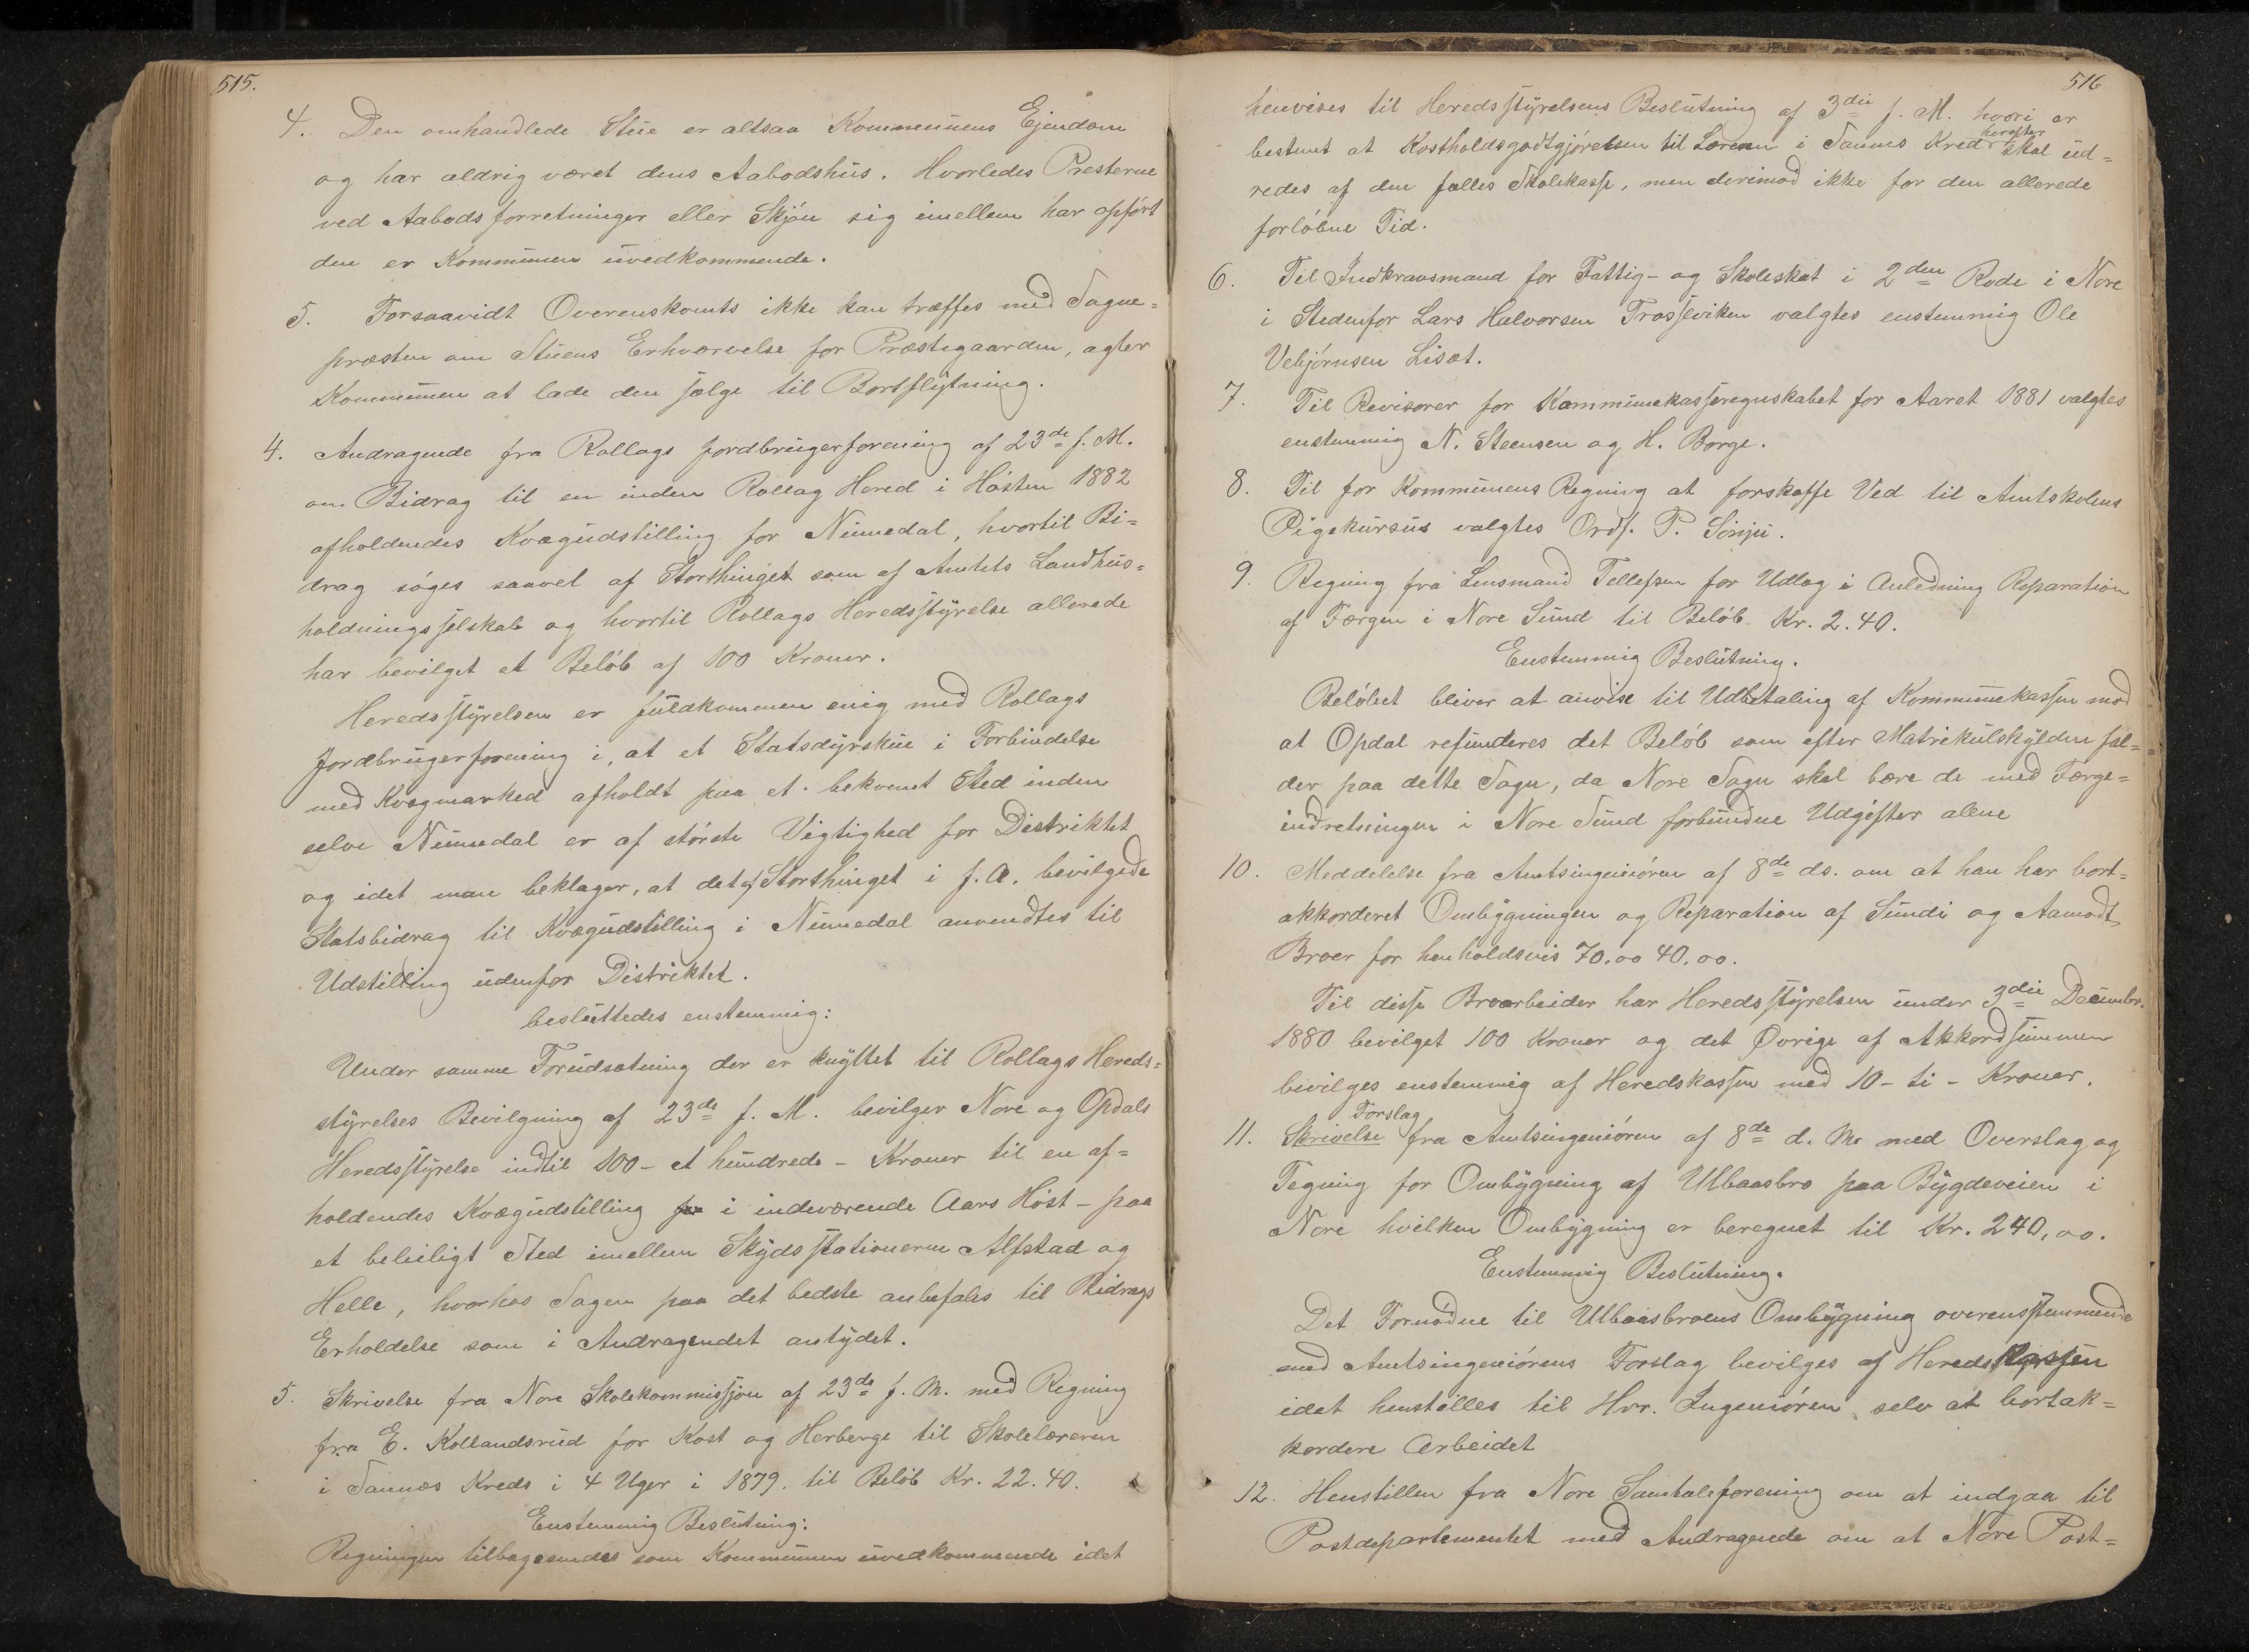 515.
4. Den omhandlede Stue er altsaa Kommunens Ejendom
og har aldrig været dens Aabodshus. Hvorledes Presterne
ved Aabodsforretninger eller Skjøn sig imellem har opført
den er Kommunen uvedkommende.
5. Forsaavidt Overenskomts ikke kan træffes med Sogne-
præsten om Stuens Erhværvelse for Præstegaarden, agter
Kommunen at lade den sælge til Bortflytning.
4. Andragende fra Rollags jordbrugerforening af 23de f. M.
om Bidrag til en inden Rollag Hered i Høsten 1882
afholdendes Kvægudstilling for Numedal, hvortil Bi-
drag søges saavel af Storthinget som af Amtets Landhus-
holdningsselskab og hvortil Rollags Heredsstyrelse allerede
har bevilget et Beløb af 100 Kroner.
Heredsstyrelsen er fuldkommen enig med Rollags
Jordbrugerforening i, at et Statsdyrskue i Forbindelse
med Kvægmarked afholdt paa et bekvemt Sted inden
selve Numedal er af største Vigtighed for Distriktet
og idet man beklager, at det af Storthinget i f. A. bevilgede
Statsbidrag til Kvægudstilling i Numedal anvendtes til
Udstilling udenfor Distriktet.
besluttedes enstemmig:
Under samme Forudsætning der er knyttet til Rollags Hereds-
styrelses Bevilgning af 23de f. M. bevilger Nore og Opdals
Heredsstyrelse indtil 100 - et hundrede - Kroner til en af-
holdendes Kvægudstilling i indeværende Aars Høst - paa
et beleiligt Sted imellem Skydsstationerne Alfstad og
Helle, hvorhos Sagen paa det bedste anbefales til Bidrags
Erholdelse som i Andragendet antydet.
5. Skrivelse fra Nore Skolekommissjon af 23de f. M. med Regning
fra E. Kollandsrud for Kost og Herberge til Skolelæreren
i Tannæs Kreds i 4 Uger i 1879. til Beløb Kr. 22.40.
Enstemmig Beslutning:
Regningen tilbagesendes som Kommunen uvedkommende idet
516
henvises til Heredsstyrelsens Beslutning af 3die f. M. hvori er
bestemt at Kostholdsgodtgjørelsen til Læreren i Tannæs Kreds herefter skal ud-
redes af den fælles Skolekasse, men derimod ikke for den allerede
forløbne Tid.
6. Til Indkrævsmand for Fattig- og Skoleskat i 2den Rode i Nore
i Stedenfor Lars Halvorsen Trosseviken valgtes enstemmig Ole
Vebjørnsen Liset.
7. Til Revisorer for Kommunekasseregnskabet for Aaret 1881 valgtes
enstemmig N. Steensen og H. Borge.
8. Til for Kommunens Regning at forskaffe Ved til Amtskolens
Pigekursus valgtes Ordf. P. Sønju.
9. Regning fra Lensmand Tellefsen for Udlæg i Anledning Reparation
af Færgen i Nore Sund til Beløb Kr. 2.40.
Enstemmig Beslutning.
Beløbet bliver at anvise til Udbetaling af Kommunekassen mod
at Opdal refunderes det Beløb som efter Matrikulskylden fal-
der paa dette Sogn, da Nore Sogn skal bære de med Færge-
indretningen i Nore Sund forbundne Udgifter alene
10. Meddelelse fra Amtsingeniøren af 8de ds. om at han har bort-
akkorderet Ombygningen og Reparation af Sundi og Aamodt
Broer for henholdsvis 70,00 40,00.
Til disse Broarbeider har Heredsstyrelsen under 3die Decembr.
1880 bevilget 100 Kroner og det Øvrige af Akkordsummen
bevilges enstemmig af Heredskassen med 10 - ti - Kroner.
11. Skrivelse Forslag fra Amtsingeniøren af 8de d. M. med Overslag og
Tegning for Ombygning af Ulbaasbro paa Bygdeveien i
Nore hvilken Ombygning er beregnet til Kr. 240,00.
Enstemmig Beslutning.
Det Fornødne til Ulbaasbroens Ombygning overensstemmende
med Amtsingeniørens Forslag bevilges af Heredskassen
idet henstilles til Hrr. Ingeniøren selv at bortak-
kordere Arbeidet
12. Henstillen fra Nore Samtaleforening om at indgaa til
Postdepartementet med Andragende om at Nore Post-